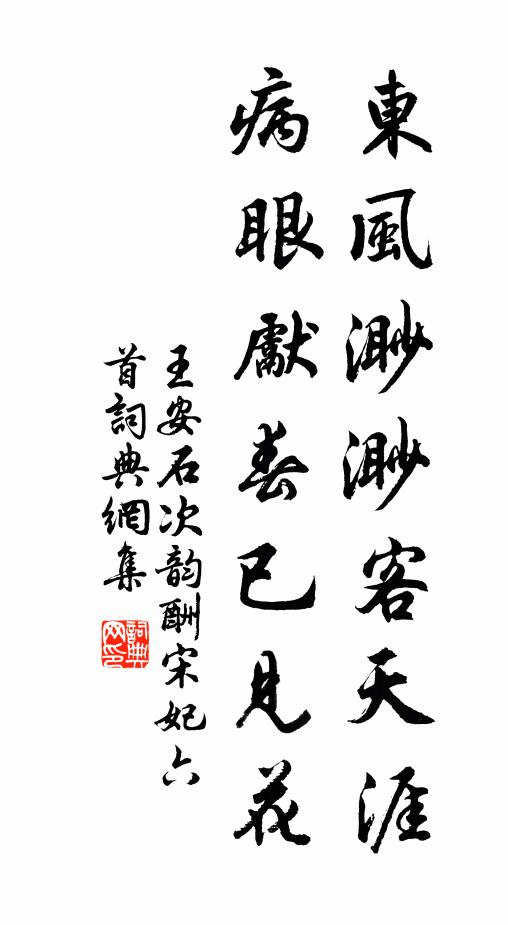 東風渺渺客天涯
病眼獻春已見花
王安石次韵酬宋妃六
首詞典網集
詞典
网印